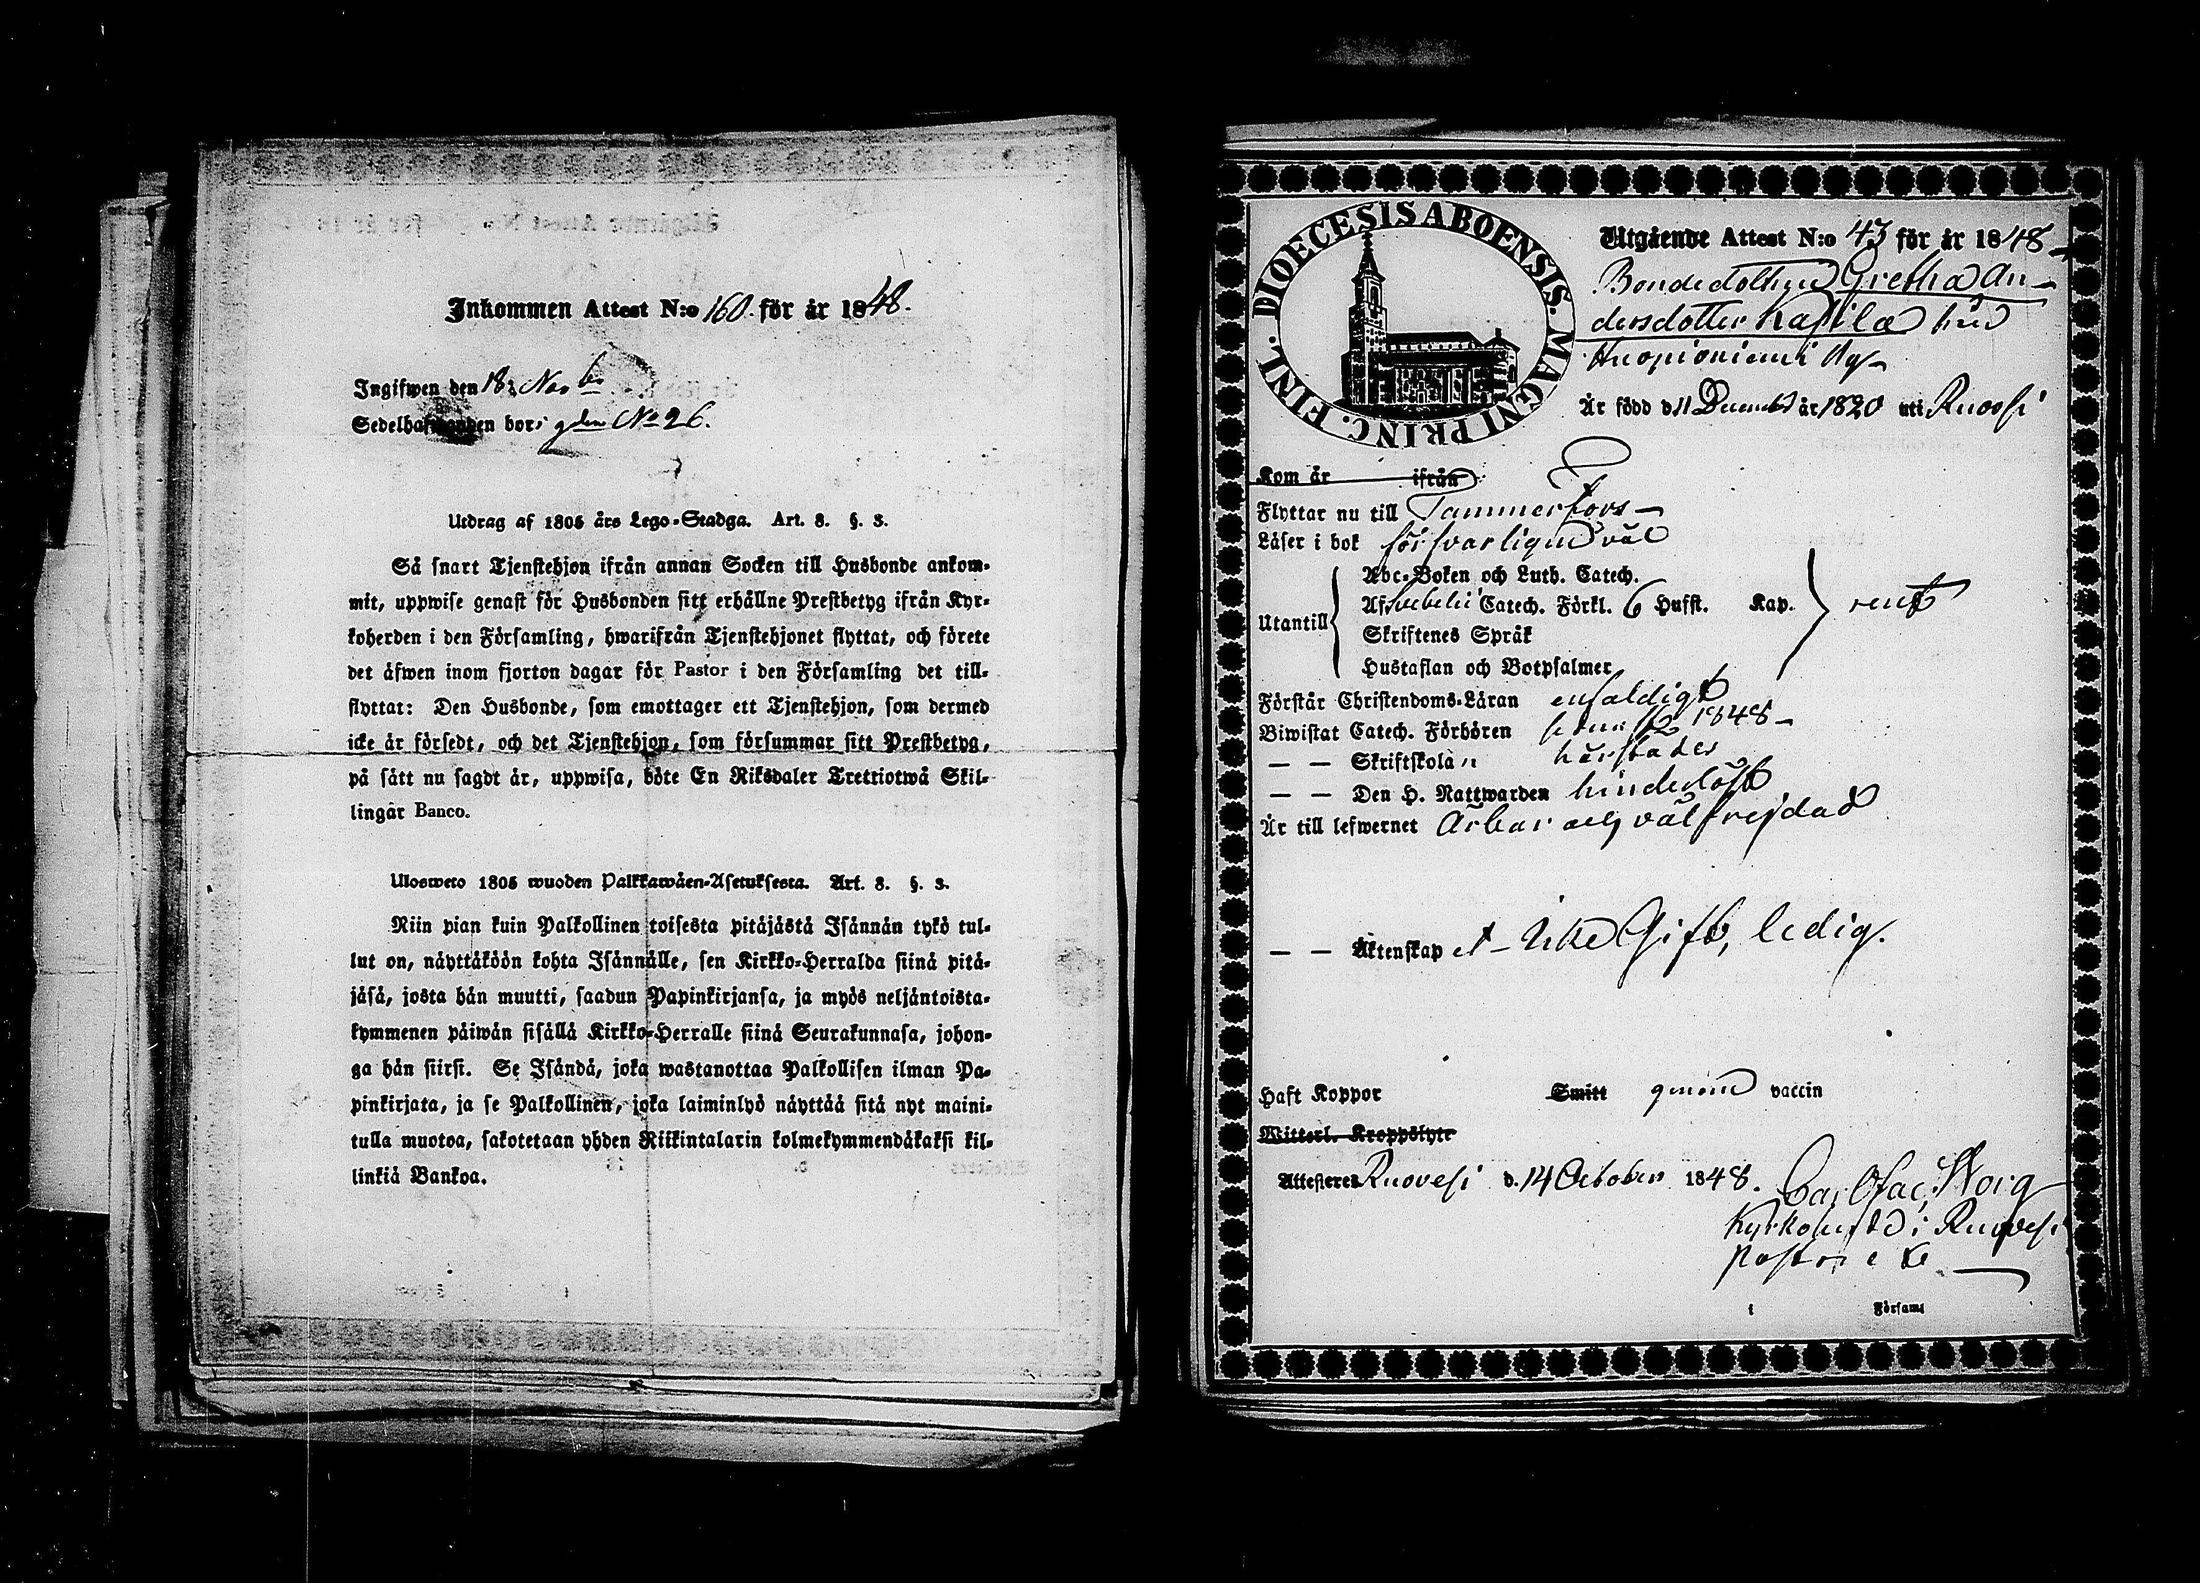 Inkommen Attest N:o 160. för år 1848.
Ingifwen den 18 Novbr
Sedelhafwanden bor i gden No 26.
Utdrag af 1805 års Lego-Stadga. Art. 8. §. 3.
Så snart Tjenstehjon ifrån annan Socken till Husbonde ankom-
mit, uppwise genast för Husbonden sitt erhållne Prestbetyg ifrån Kyr-
koherden i den Församling, hwarifrån Tjenstehjonet flyttat, och förete
det äfwen inom fjorton dagar för Pastor i den Församling det till-
flyttat: Den Husbonde, som emottager ett Tjenstehjon, som dermed
icke är försedt, och det Tjenstehjon, som försummar sitt Prestbetyg,
på sätt nu sagdt är, uppwisa, böte En Riksdaler Tretriotwå Skil-
lingar Banco.
Uloswето 1805 wuoden Palkkawäen-Asetuksesta. Art. 8. §. 3.
Niin pian kuin Palkollinen toisesta pitäjästä Isännän tykö tul-
lut on, näyttäköön kohta Isännälle, sen Kirkko-Herralda siinä pitä-
jäsä, josta hän muutti, saadun Papinkirjansa, ja myös neljäntoista-
kymmenen päiwän sisällä Kirkko-Herralle siinä Seurakunnasa, johon-
ga hän siirsi. Se Isändä, joka wastanottaa Palkollisen ilman Pa-
pinkirjata, ja se Palkollinen, joka laiminlyö näyttää sitä nyt maini-
tulla muotoa, sakotetaan yhden Riikintalarin kolmekymmendäkaksi kil-
linkiä Bankoa.
DIOECESIS ABOENSIS. MAGNI PRINC. FINL.
Utgående Attest N:o 43 för år 1848
Bondedottren Gretha An-
dersdotter Kapila från
Är född d. 11 December år 1820 uti Ruovesi
Kom år ifrån
Flyttar nu till Tammerfors
Läser i bok försvarligen väl
Abc-Boken och Luth. Catech.
Utantill Afsvebelii Catech. Förkl. 6 Hufst. Kap. rent
Skriftenes Språk
Hustaflan och Botpsalmer
Förstår Christendoms-Läran enfaldigt
Biwistat Catech. Förhören 1848
— — Skriftskola härstädes
— — Den H. Nattwarden hinderlöst
Är till lefwernet Ärbar och välfrejdad
— — Äktenskapet Icke Gift, ledig.
Haft Koppor Smitt genom vaccin
Witterl. Kroppslyte
Attesteres Ruovesi d. 14 October 1848.
Kyrkoherde i Ruovesi
Pastor
i Församl